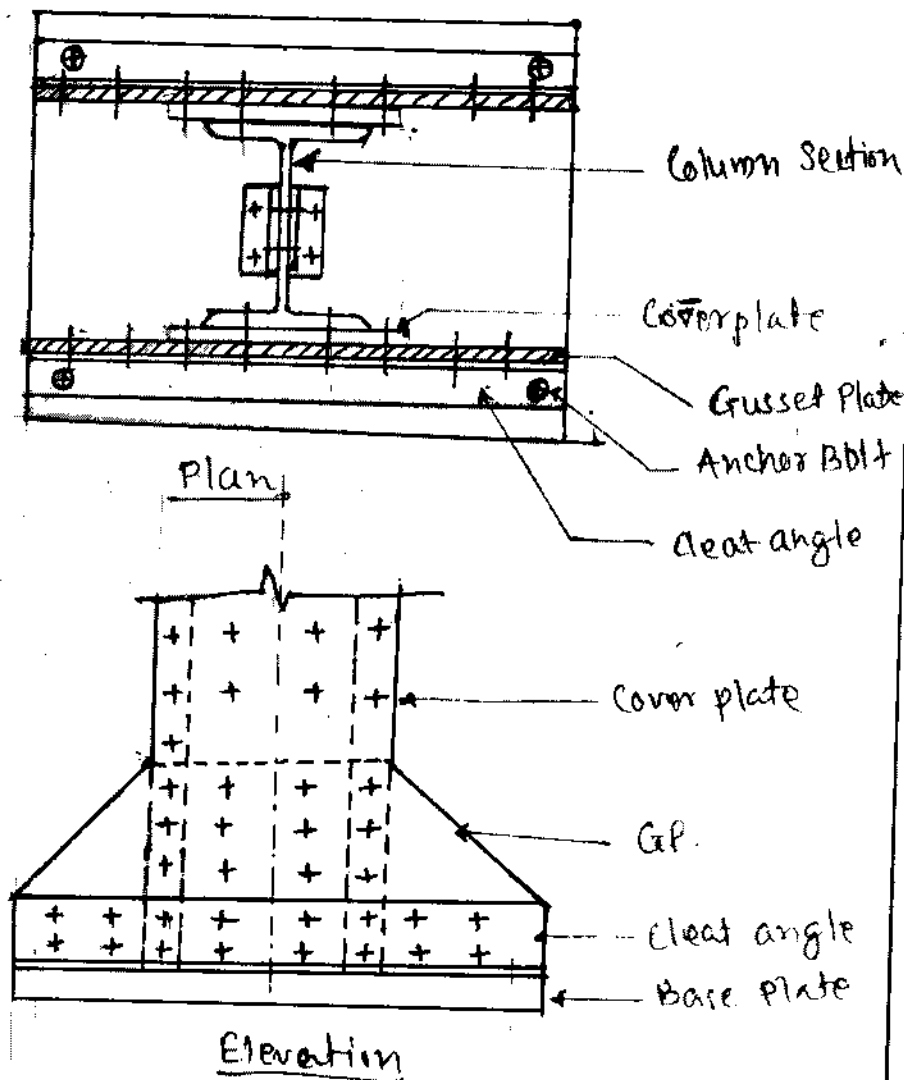 Column Section
Coverplate
Gusset Plate
Anchor Bolt
Cleat angle
Plan
Cover plate
GP.
Cleat angle
Base plate
Elevation